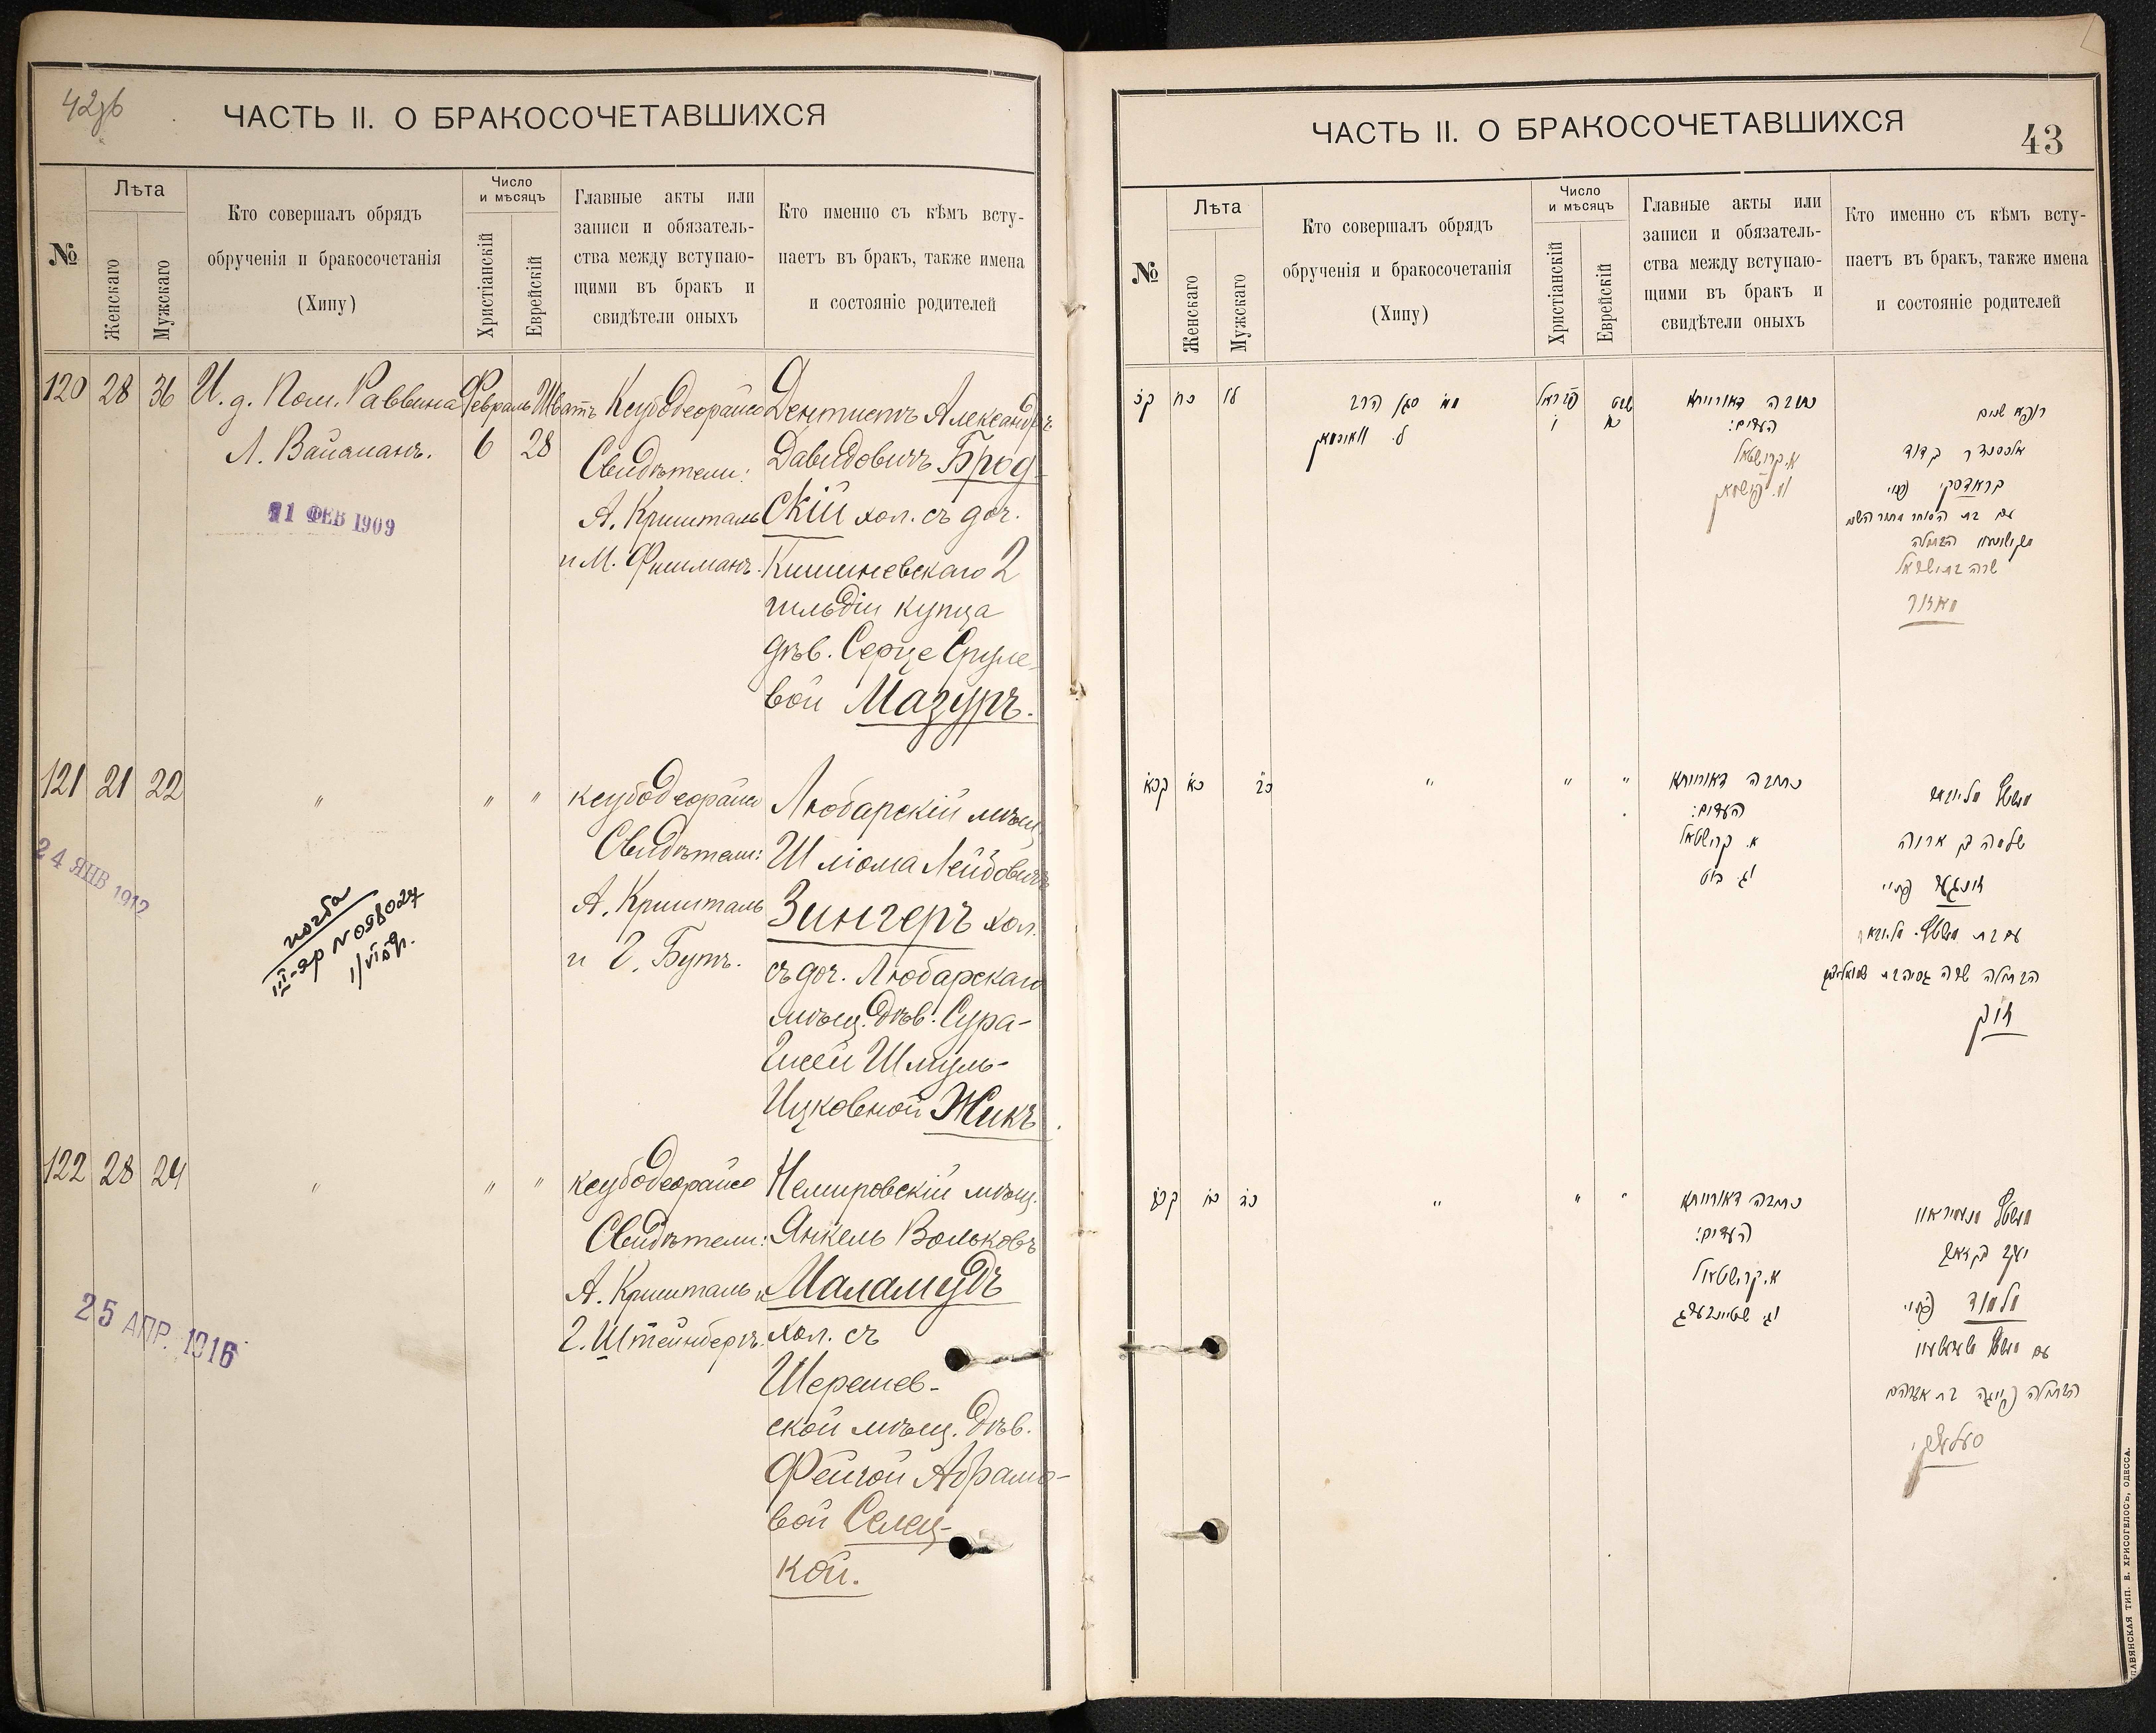 ЧАСТЬ II. О БРАКОСОЧЕТАВШИХСЯ
№
Лѣта
Женскаго
Мужскаго
Кто совершалъ обрядъ
обрученія и бракосочетанія
(Хипу)
Число
и мѣсяцъ
Христіанскій
Еврейскій
Главные акты или
записи и обязатель-
ства между вступаю-
щими въ бракъ и
свидѣтели оныхъ
Кто именно съ кѣмъ всту-
паетъ въ бракъ, также имена
и состояніе родителей
120 28 36
И. д. Пом. Раввина
Л. Вайсманъ.
11 ФЕВ 1909
Февраль Шватъ
6 28
Ксубодеорайсо
Свидѣтели:
А. Кришталь
и М. Фишманъ.
Дентистъ Александръ
Давидовичъ Брод-
скій хол. съ доч.
Кишиневскаго 2
гильдіи купца
дѣв. Серце Сруле-
вой Мазуръ.
121 21 22
" " "
24 ЯНВ 1912
ксубодеорайсо
Свидѣтели:
А. Кришталь
и Г. Бутъ.
Любарскій мѣщ.
Шліома Лейбовичъ
Зингеръ хол.
съ доч. Любарскаго
мѣщ. дѣв. Сура-
Гисей Шмуль-
Ицковной Жикъ.
122 28 24
" " "
25 АПР. 1916
ксубодеорайсо
Свидѣтели:
А. Кришталь и
Г. Штейнбергъ.
Немировскій мѣщ.
Янкель Вольковъ
Маламудъ
хол. съ
Шерешев-
ской мѣщ. дѣв.
Фейгой Абрамо-
вой Селец-
кой.
ЧАСТЬ II. О БРАКОСОЧЕТАВШИХСЯ
43
№
Лѣта
Женскаго
Мужскаго
Кто совершалъ обрядъ
обрученія и бракосочетанія
(Хипу)
Число
и мѣсяцъ
Христіанскій
Еврейскій
Главные акты или
записи и обязатель-
ства между вступаю-
щими въ бракъ и
свидѣтели оныхъ
Кто именно съ кѣмъ всту-
паетъ въ бракъ, также имена
и состояніе родителей
קכ כח לו
סגן הרב
ל. וואיסמאן
שבט
כתובה דאורייתא
העדים:
א. קרישטאל
מ. פישמאן
רופא שנים
אלכסנדר בן דוד
בראדסקי פנוי
הבתולה
שרה בת ישראל
מאזור
קכא כא כב
" " "
כתובה דאורייתא
העדים:
א. קרישטאל
וג. בוט
שלמה בן אריה
זינגער פנוי
הבתולה שרה גיסה בת
זיק
" " "
כתובה דאורייתא
העדים:
א. קרישטאל
וג. שטיינבערג
יעקב בן זאב
מלמד פנוי
הבתולה פייגה בת אברהם